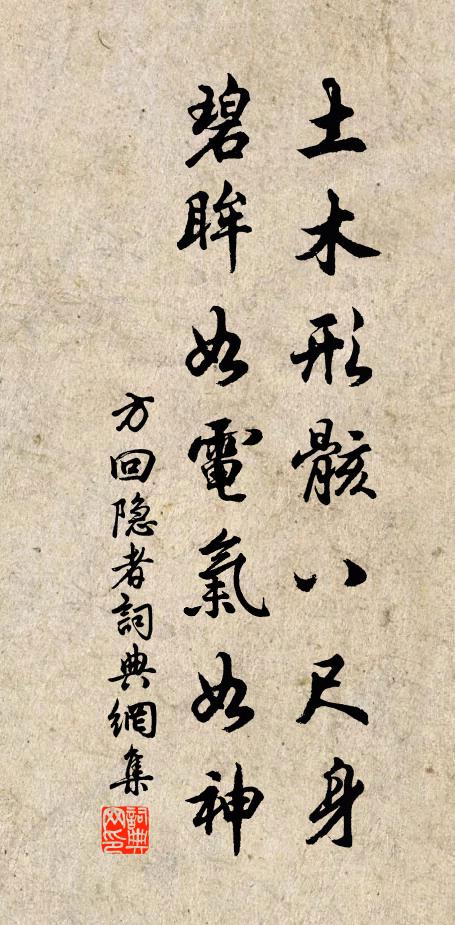 土木形骸八尺身
碧眸如電氣如神
方回隐者詞典網集
詞典網印